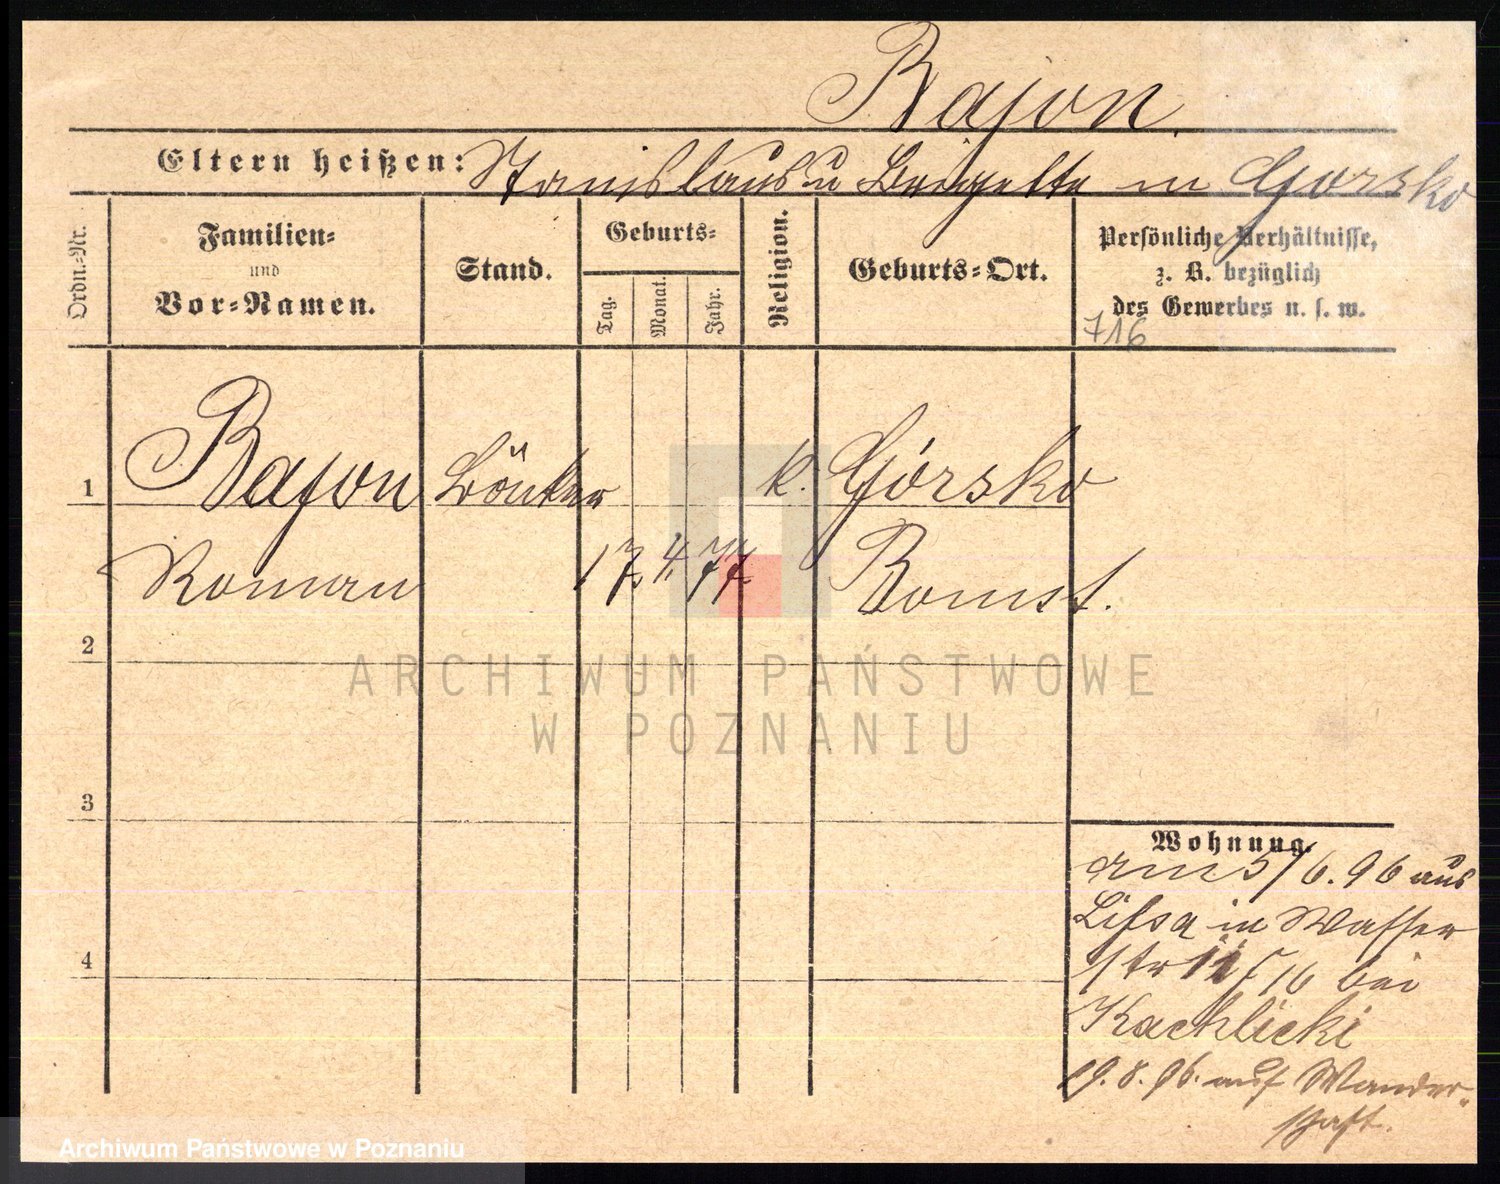 Bajon.
Eltern heißen: Stanislaus u Brigette in Gorsko
Ordn.-Nr.
Familien-
und
Vor-Namen.
Stand.
Geburts-
Tag.
Monat.
Jahr.
Religion.
Geburts-Ort.
Persönliche Verhältnisse,
z. B. bezüglich
des Gewerbes u. s. w.
716
1 Bajon k. Górsko
Roman 17. 4. 77 Bomst.
2
3
4
Wohnung.
am 5/6.96 aus
Lissa in Wasser
str 16 bei
Kachlicki
19.8.96. auf Wander-
schaft.
ARCHIWUM PAŃSTWOWE
W POZNANIU
Archiwum Państwowe w Poznaniu